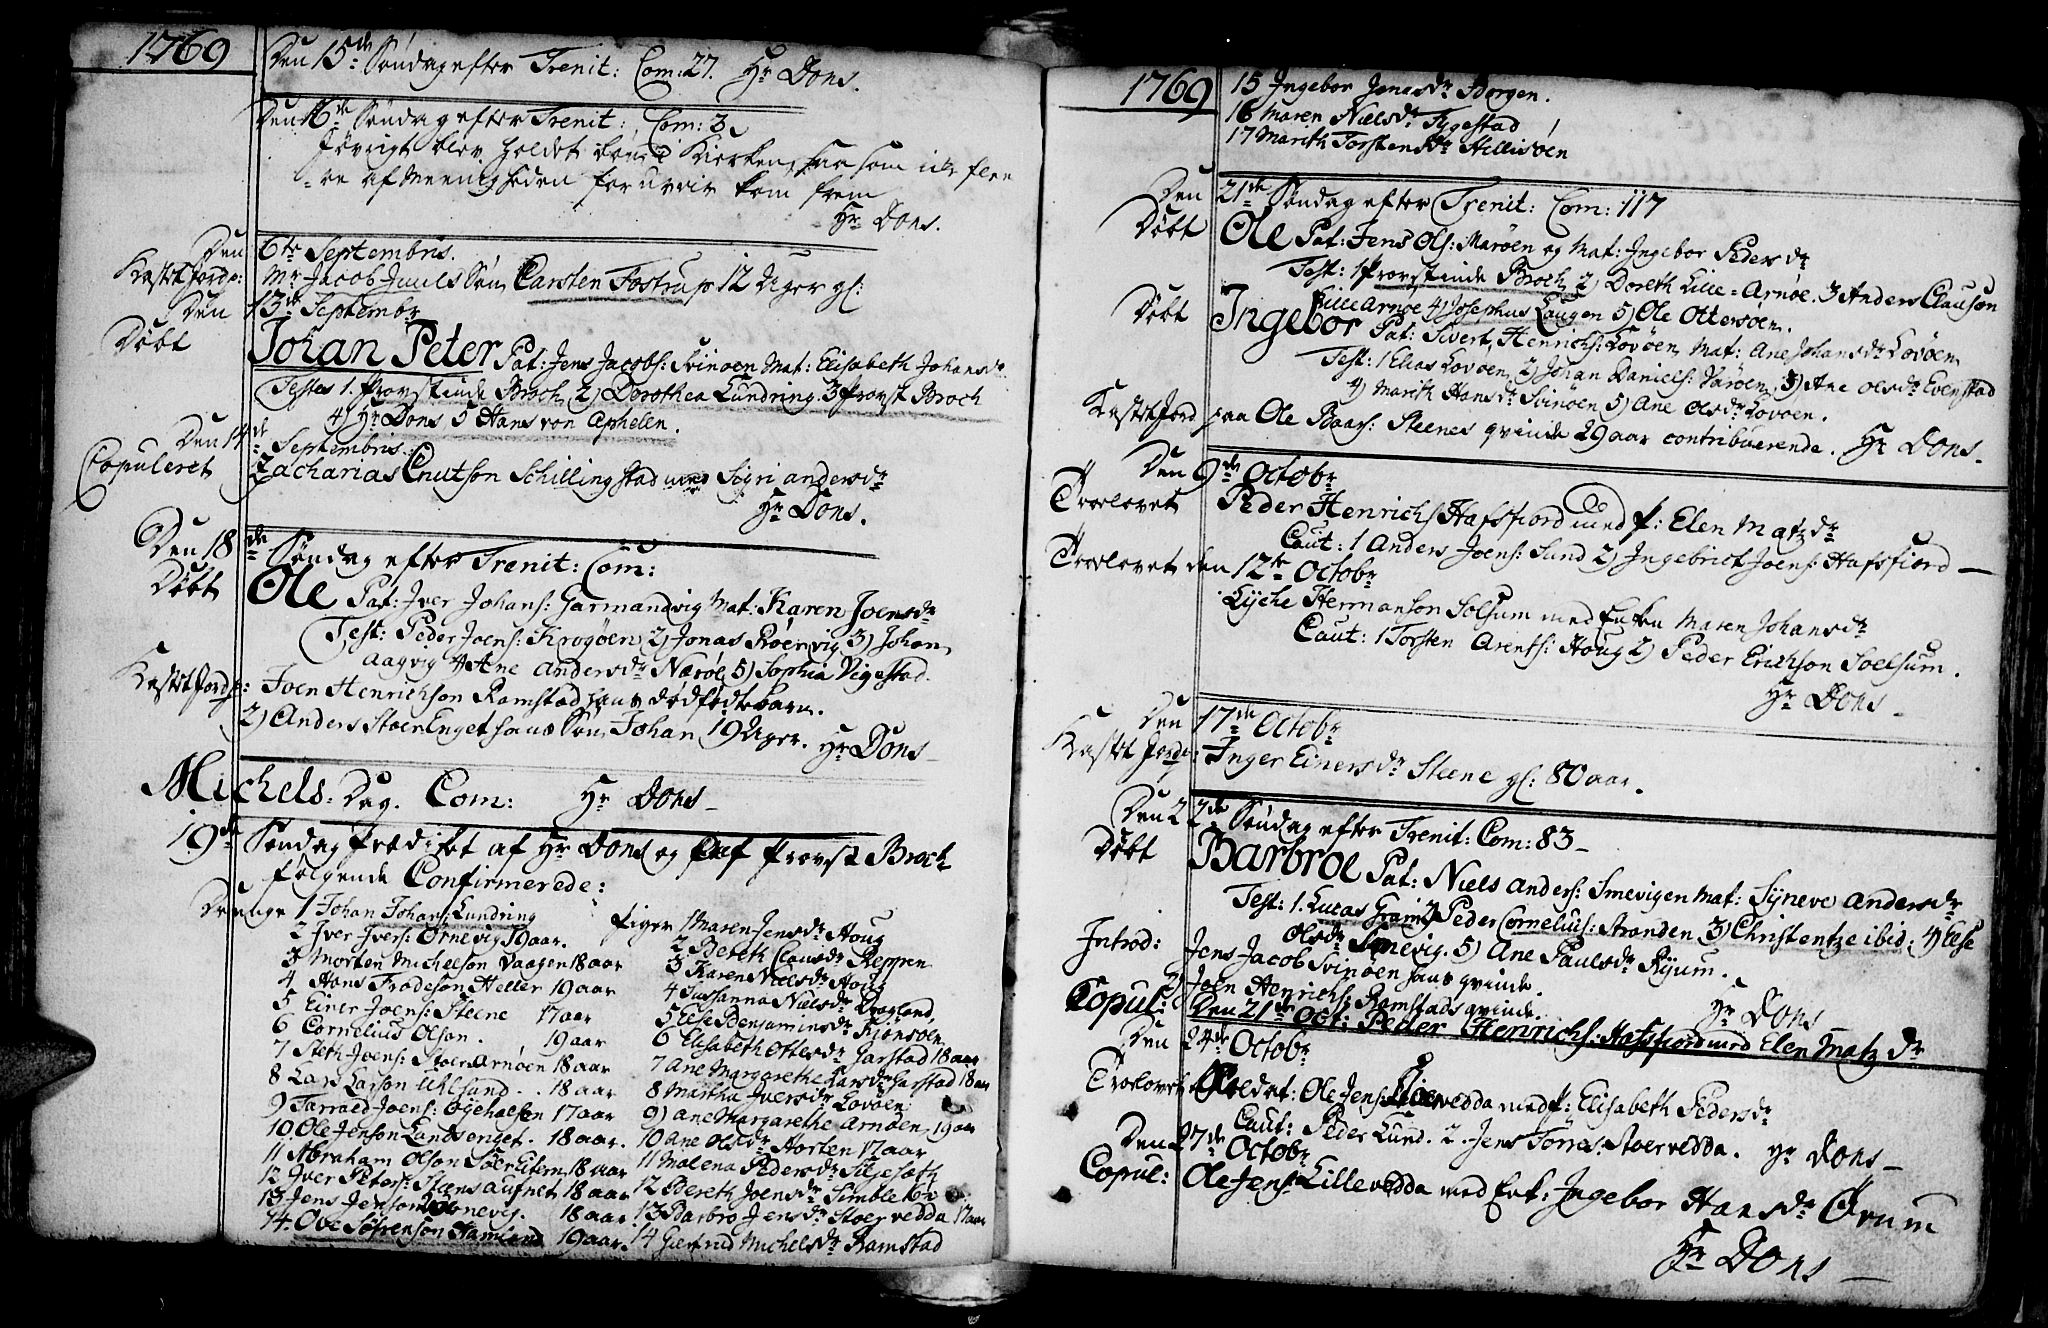 1769
Den 15de Søndag efter Trenit: Com: 27. Hr Dons.
Den 16de Søndag efter Trenit: Com: 3
Jøvrigt blev holdet bøn i Kierken, saa som ick fler
re af Meenigheden for uveir kom frem
Hr Dons.
Den 6te Septembris.
Kastet Jord p: Mr Jacob Juuls Søn Carsten Fostrup 12 Uger gl:
Den 13de Septembr
Døbt Johan Peter Pat: Jens Jacobs: Svinøen Mat: Elisabeth Johansdr
Testes 1. Provstinde Broch 2) Dorothea Lundring. 3 Provst Broch
4 Hr Dons 5 Hans von Aphelen.
Den 14de Septembris.
Copuleret Zacharias Cnutson Schillingstad med Sigri andersdr
Hr Dons.
Den 18de Søndag efter Trenit: Com:
Døbt Ole Pat: Iver Johans: Garmandvig Mat: Karen Joensdr
Test: Peder Joens: Krogøen 2) Jonas Roervig 3) Johan
Aagvig 4 Ane Andersdr Nærøe 5) Sophia Vigestad.
Kastet Jord p: Joen Henrichson Ramstad hans dødfødte barn.
2) Anders Stoer Enget hans Søn Johan 19 Uger. Hr Dons
Michels: Dag. Com: Hr Dons
19de Søndag Prædiket af Hr Dons og af Provst Broch
følgende Confirmerede:
Drenge 1 Johan Johans: Lundring
2 Iver Ivers: Ørnevig 19 aar.
3 Morten Michelson Vaagen 18 aar
4 Hans Frodeson Heller 19 aar
5 Einer Joens: Steene 17 aar
6 Cornelius Olson. 19 aar
7 Steth Joens: Stoer Arnøen 18 aar
8 Lars Larson Uhlsand. 18 aar
9 Tarrald Joens: 17 aar
10. Ole Jenson Landsenget. 18 aar.
11 Abraham Olson 18 aar
12 Iver Peters: Stensaufnet 18 aar
13 Jens Jenson Ørnevig. 18 aar.
14. Ove Sørenson 19 aar.
Piger 1 Maren Jensdr Houg
2 Bereth Clausdr Reppen
3 Karen Nielsdr Houg
4 Sussanna Nielsdr Dragland,
5 Else Benjaminsdr
6 Elisabeth Ottersdr Garstad 18 aar
7 Ane Margarethe Larsdr Garstad 18 aar
8 Martha Iversdr Lovøen
9) Ane Margarethe Arnøen 19 aar
10 Ane Olsdr Horten 17 aar
11 Malena Pedersdr
12 Bereth Joensdr
13 Barbro Jensdr Stoer vedda 17 aar
14 Giertrud Michelsdr Ramstad
1769
15 Ingebor Jonasdr Borgen.
16 Maren Nielsdr Fygestad
17 Marith Torstensdr Hellisøen
Den 21de Søndag efter Trenit: Com: 117
Døbt Ole Pat: Jens Ols: Marøen og Mat: Ingebor Pedersdr
Test: 1 Provstinde Broch 2) Doreth Lille=Arnøe. 3 Anders Clauson
Lille Arnøe 4) Josephus Laugen 5) Ole Otterson.
Døbt Ingebor Pat: Sivert Henrichs: Lovøen Mat: Ane Johansdr Lovøen
Test: 1 Elias Lovøen, 2) Johan Daniels: Varøen, 3) Ane olsdr Evenstad
4) Marith Hansdr Svinøen 5) Ane Olsdr Lovøen.
Kastet Jord paa Ole Baars: Steenes qvinde 29 aar contribuerende. Hr Dons
Den 9de Octobr
Troelovet Peder Henrichs Hafsfiord med P: Elen Matzdr
Caut: 1 Anders Joens: Sund 2) Ingebrict Joens: Hafsfiord
Troelovet den 12te Octobr
Lyche Hermanson Solsum med Enken Maren Johansdr
Caut: 1 Torsten Arents: Houg 2) Peder Erichson Soelsum.
Hr Dons
Den 17de Octobr
Kastet Jord p: Inger Einersdr Steene gl: 80 aar.
Den 22de Søndag efter Trenit: Com: 83
Døbt Barbrol Pat: Niels anders: Smevigen Mat: Syneve Andersdr
Test: 1. Lucas Gram 2 Peder Cornelius: Stranden 3) Christentze ibid: 4) Else
Olsdr Smevig. 5) Ane Paulsdr Ryum.
Introd: Jens Jacob Svinøen hans qvinde.
2) Joen Henrichs: Ramstads qvinde. Hr Dons
Copul: Den 21de Oct: Peder Henrichs: Hafsfiord med Elen Matz dr
Den 24de Octobr
Troelovet Soldat: Ole Jens: Lillevedda med P: Elisabeth Pedersdr
Caut: Peder Lund. 2. Jens Torres: Stoervedda. Hr Dons
Den 27de Octobr
Copul: Ole Jens: Lillevedda med Enk: Ingebor Hansdr Øvum
Hr Dons